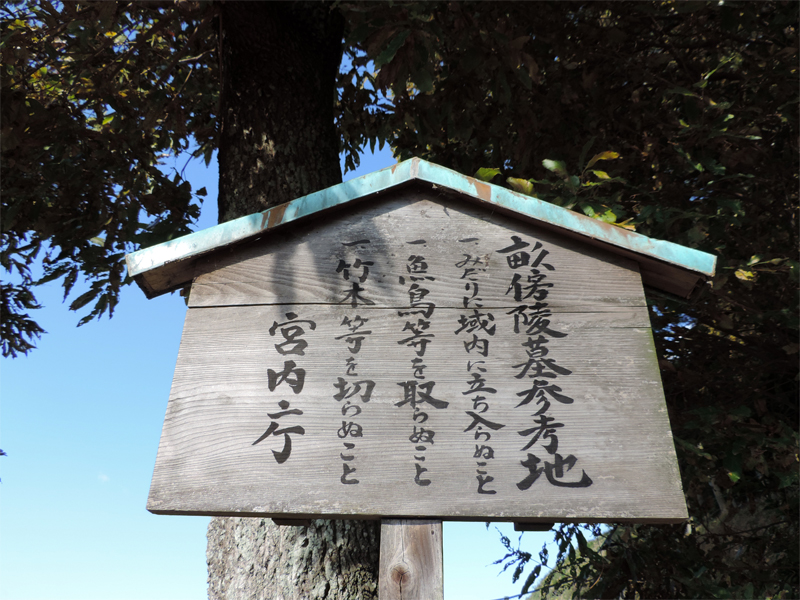 畝傍陵墓参考地
一みだりに域内に立ち入らぬこと
一魚鳥等を取らぬこと
一竹木等を切らぬこと
宮内庁